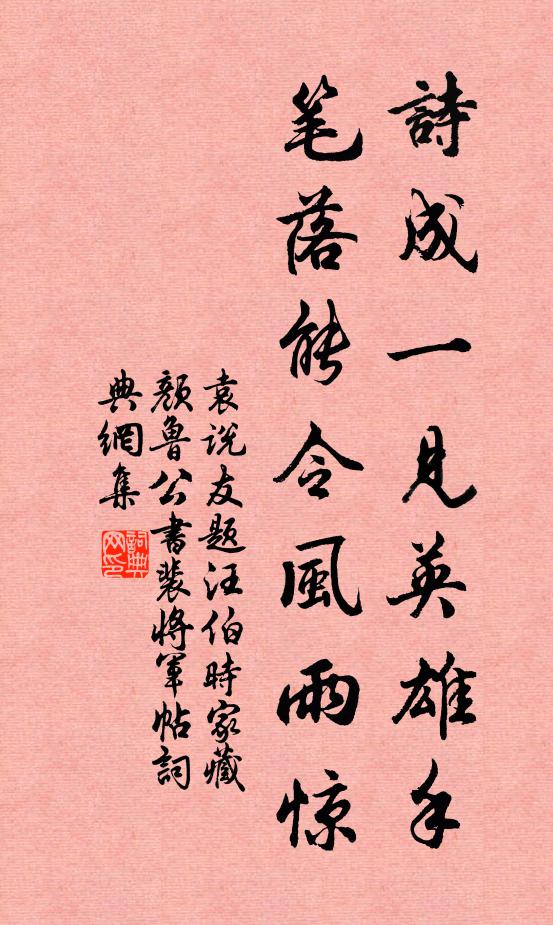 詩成一見英雄手
笔落能令風雨惊
袁说友题汪伯時家藏
顏魯公書裴將軍帖詞
典網集
詞典
网印